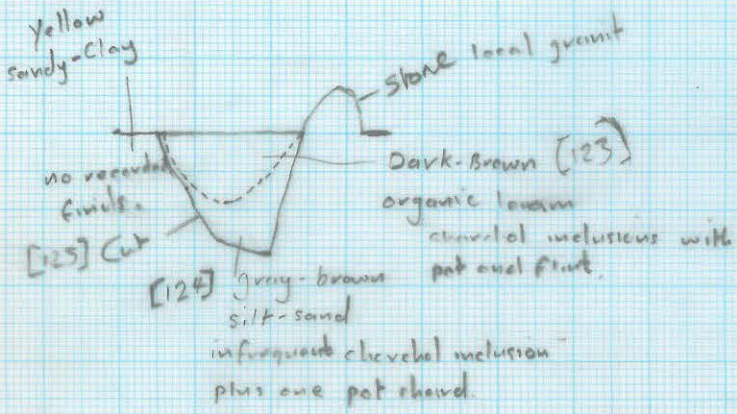 Yellow
Sandy-Clay
Stone local granit
no recorded
finds.
Dark-Brown [123]
organic loam
charchol inclusions with
pot and flint.
[125] Cut
[124] gray-brown
silt-sand
infrequent charchol inclusion
plus one pot shard.